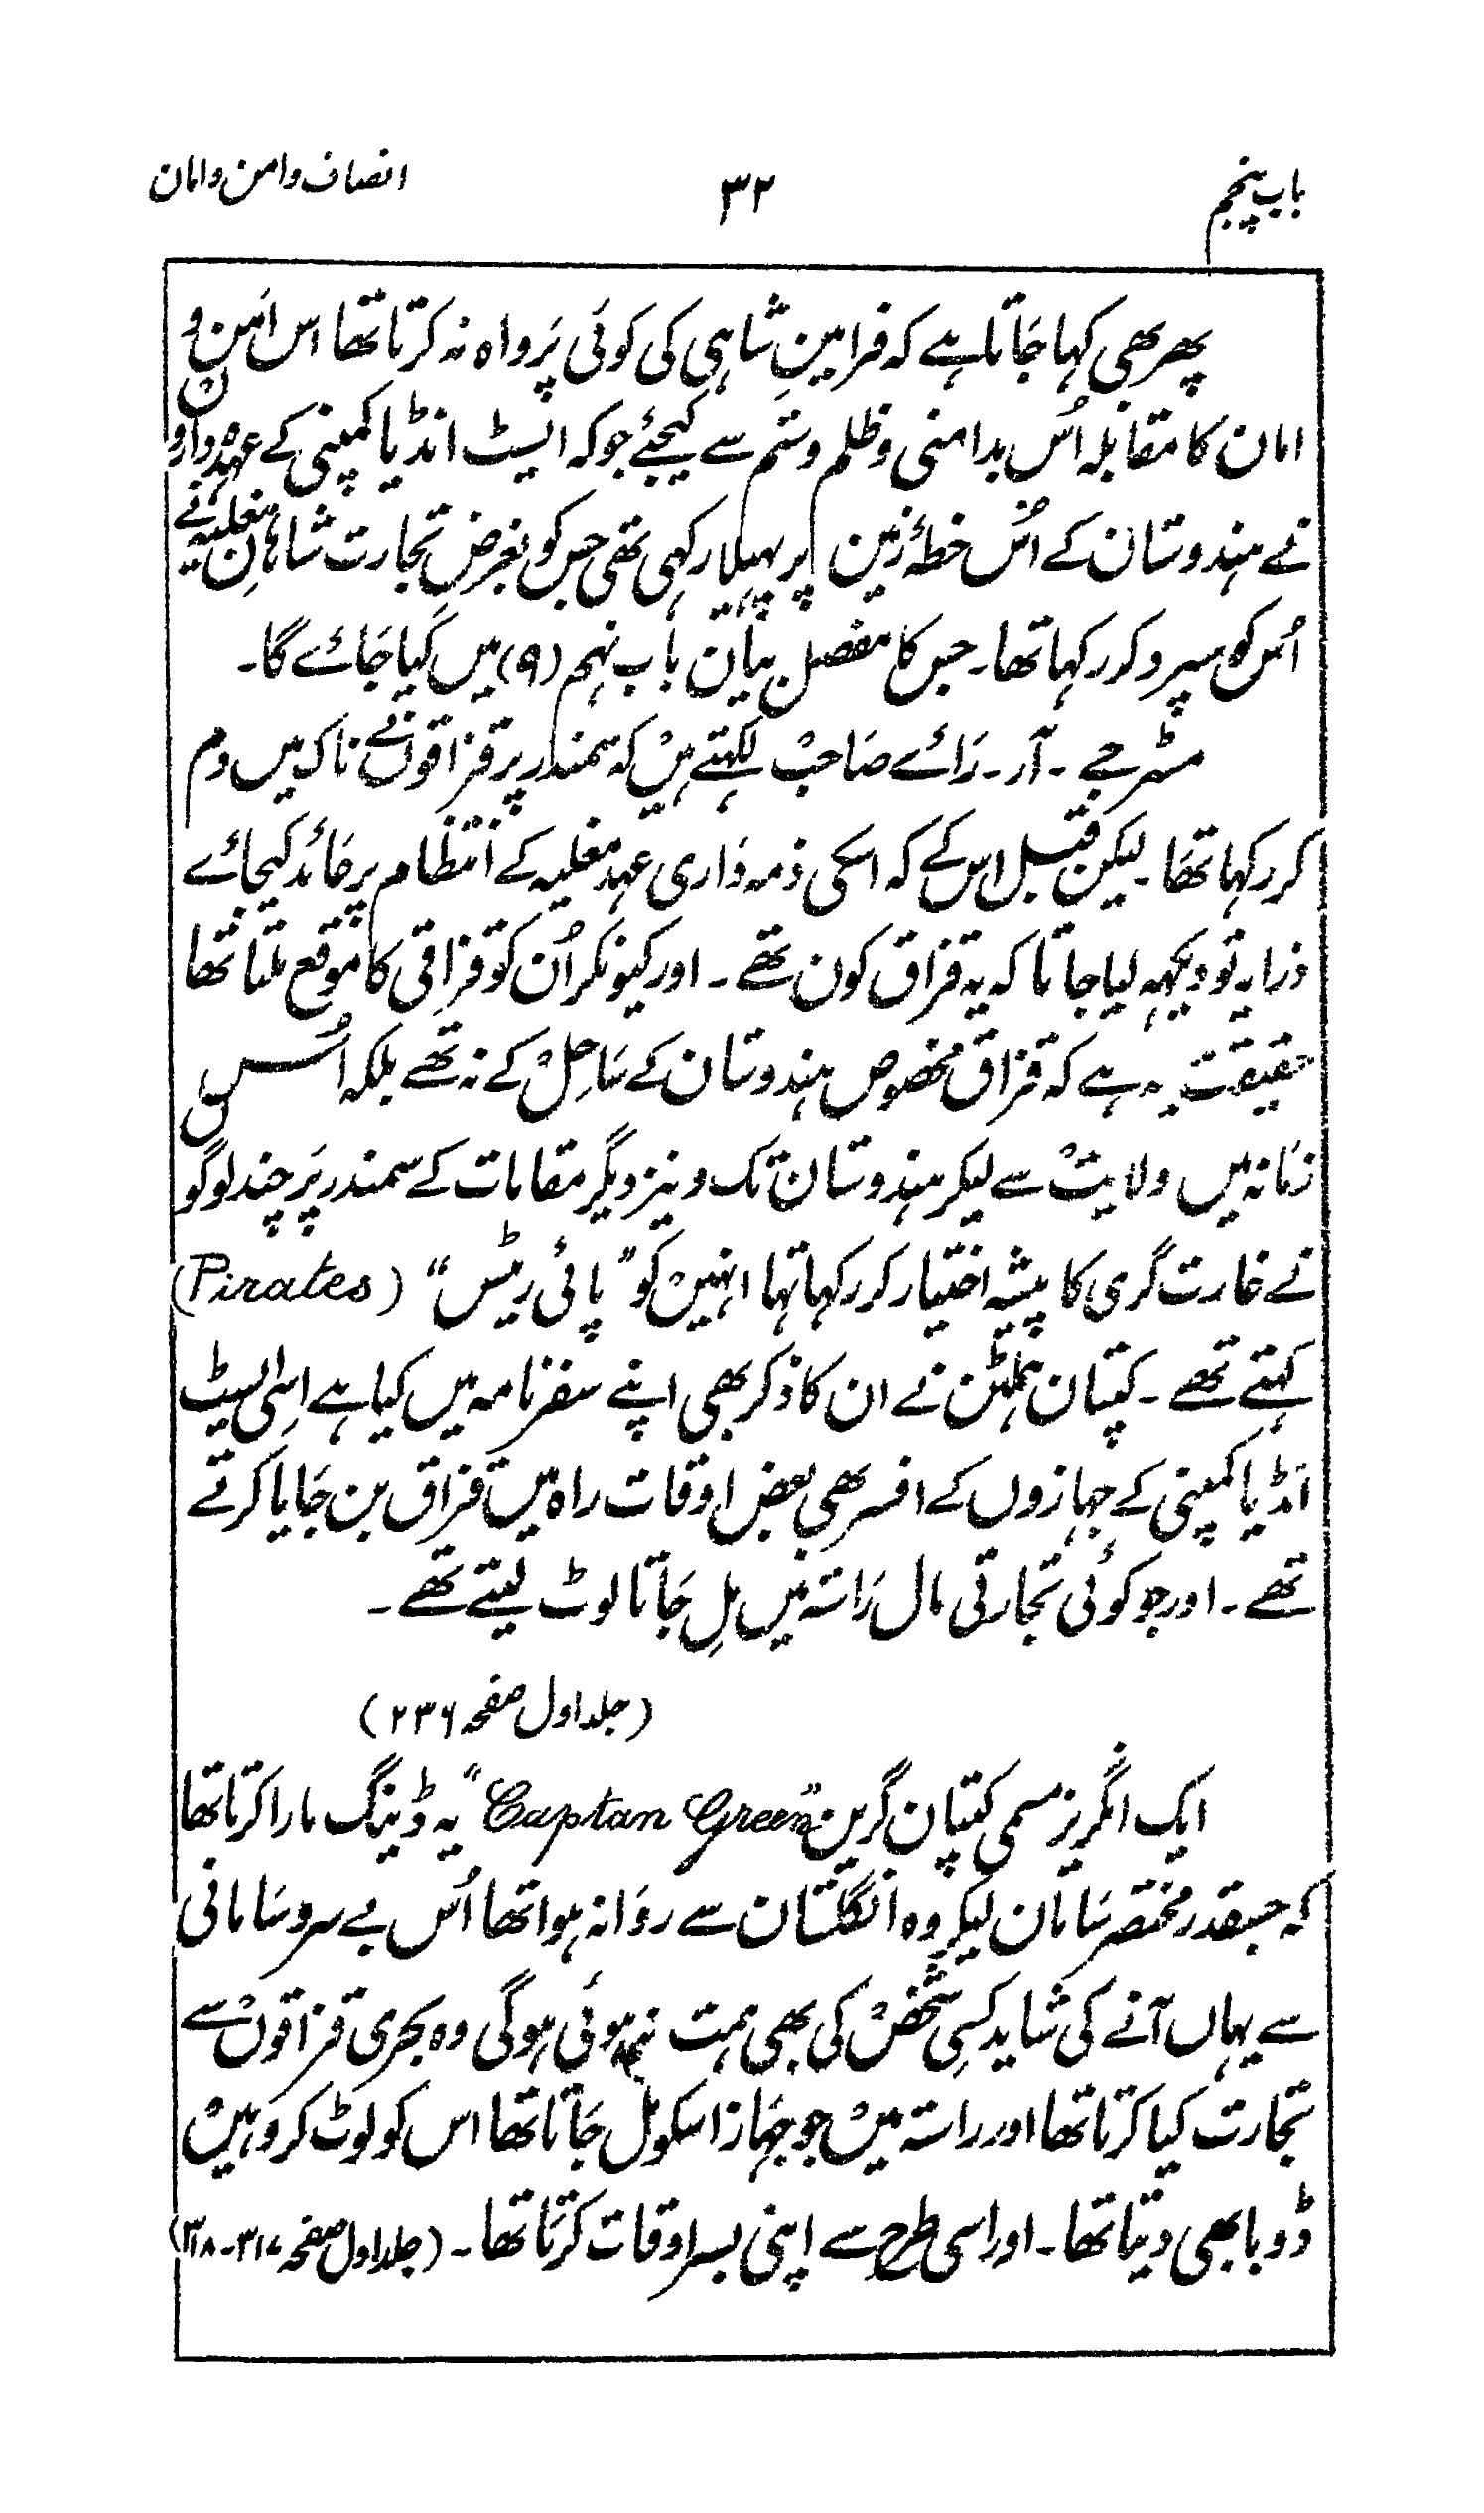 باب پنجم
۳۲
انصاف و امن و امان
پھر بھی کہا جاتا ہے کہ فرامینِ شاہی کی کوئی پرواہ نہ کرتا تھا اس امن و
امان کا مقابلہ اُس بدامنی و ظلم و ستم سے کیجئے جو کہ ایسٹ انڈیا کمپنی کے عہدہ داروں
نے ہندوستان کے اُس خطۂ زمین پر پھیلا رکھی تھی جس کو بغرض تجارت شاہانِ مغلیہ نے
اُس کو سپرد کر رکہا تھا۔ جس کا مفصل بیان باب نہم (۹) میں کیا جائے گا۔
مسٹر جے۔ آر۔ رائے صاحب لکہتے ہیں کہ سمندر پر قزاقوں نے ناک میں دم
کر رکہا تھا۔ لیکن قبل اس کے کہ اسکی ذمہ داری عہد مغلیہ کے انتظام پر عائد کیجائے
ذرا یہ تو دیکہہ لیا جاتا کہ یہ قزاق کون تھے۔ اور کیونکر اُن کو قزاقی کا موقع ملتا تھا
حقیقت یہ ہے کہ قزاق مخصوص ہندوستان کے ساحل کے نہ تھے بلکہ اُس
زمانہ میں ولایت سے لیکر ہندوستان تک و نیز دیگر مقامات کے سمندر پر چند لوگوں
نے غارت گری کا پیشہ اختیار کر رکہا تہا انہیں کو ”پائی ریٹس“ (Pirates)
کہتے تھے۔ کپتان ہملٹن نے ان کا ذکر بھی اپنے سفرنامہ میں کیا ہے اِسی ایسٹ
انڈیا کمپنی کے جہازوں کے افسر بھی بعض اوقات راہ میں قزاق بن جایا کرتے
تھے۔ اور جو کوئی تجارتی مال راستہ میں مِل جاتا لوٹ لیتے تھے۔
(جلد اول صفحہ ۲۳۶)
ایک انگریز مسمی کپتان گرین ”Captan Green“ یہ ڈینگ مارا کرتا تھا
کہ جسقدر مختصر سامان لیکر وہ انگلستان سے روانہ ہوا تھا اُس بے سروسامانی
سے یہاں آنے کی شاید کسِی شخص کی بھی ہمت نہ ہوئی ہوگی وہ بحری قزاقوں سے
تجارت کیا کرتا تھا اور راستہ میں جو جہاز اسکو مل جاتا تھا اس کو لوٹ کر وہیں
ڈوبا بھی دیتا تھا۔ اور اسی طرح سے اپنی بسر اوقات کرتا تھا۔ (جلد اول صفحہ ۳۱۷۔۳۱۸)